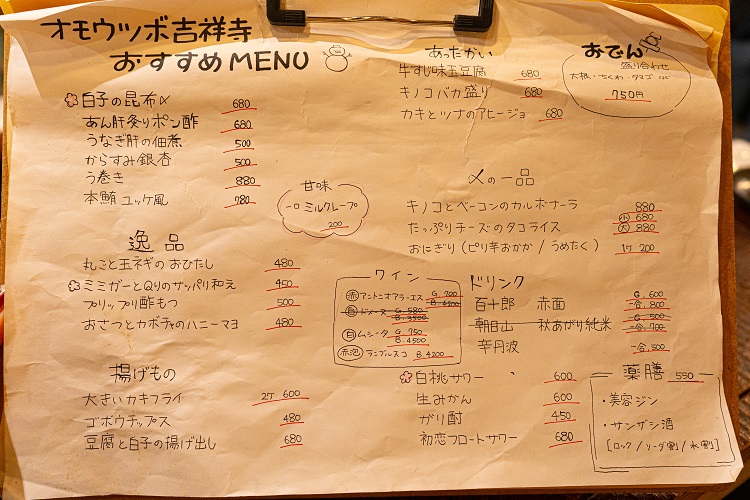 オモウツボ吉祥寺
おすすめMENU
白子の昆布〆 680
あん肝炙りポン酢 680
うなぎ肝の佃煮 500
からすみ銀杏 500
う巻き 880
本鮪ユッケ風 780
逸品
丸ごと玉ネギのおひたし 480
ミミガーとQりのサッパリ和え 450
プリップリ酢もつ 500
おさつとカボチャのハニーマヨ 480
揚げもの
大きいカキフライ 2ケ 600
ゴボウチップス 480
豆腐と白子の揚げ出し 680
甘味
一口ミルクレープ
200
あったかい
牛すじ味玉豆腐 680
キノコバカ盛り 680
カキとツナのアヒージョ 680
おでん
盛り合わせ
大根・ちくわ・タマゴ etc
750円
〆の一品
キノコとベーコンのカルボナーラ 880
たっぷりチーズのタコライス 小 680
大 880
おにぎり(ピリ辛おかか/うめたく) 1ケ 200
ワイン
赤 アントニオアラ・エス G. 700
B. 4200
白 ドメーヌ G. 580
B. 3500
白 ムシータ G. 750
B. 4500
赤泡 ランブルスコ B. 4200
ドリンク
百十郎 赤面 G. 600
一合. 800
朝日山 秋あがり純米 G. 500
一合. 700
辛丹波 一合. 500
白桃サワー 600
生みかん 600
がり酎 450
初恋フロートサワー 680
薬膳 550
・美容ジン
・サンザシ酒
[ロック/ソーダ割/水割]